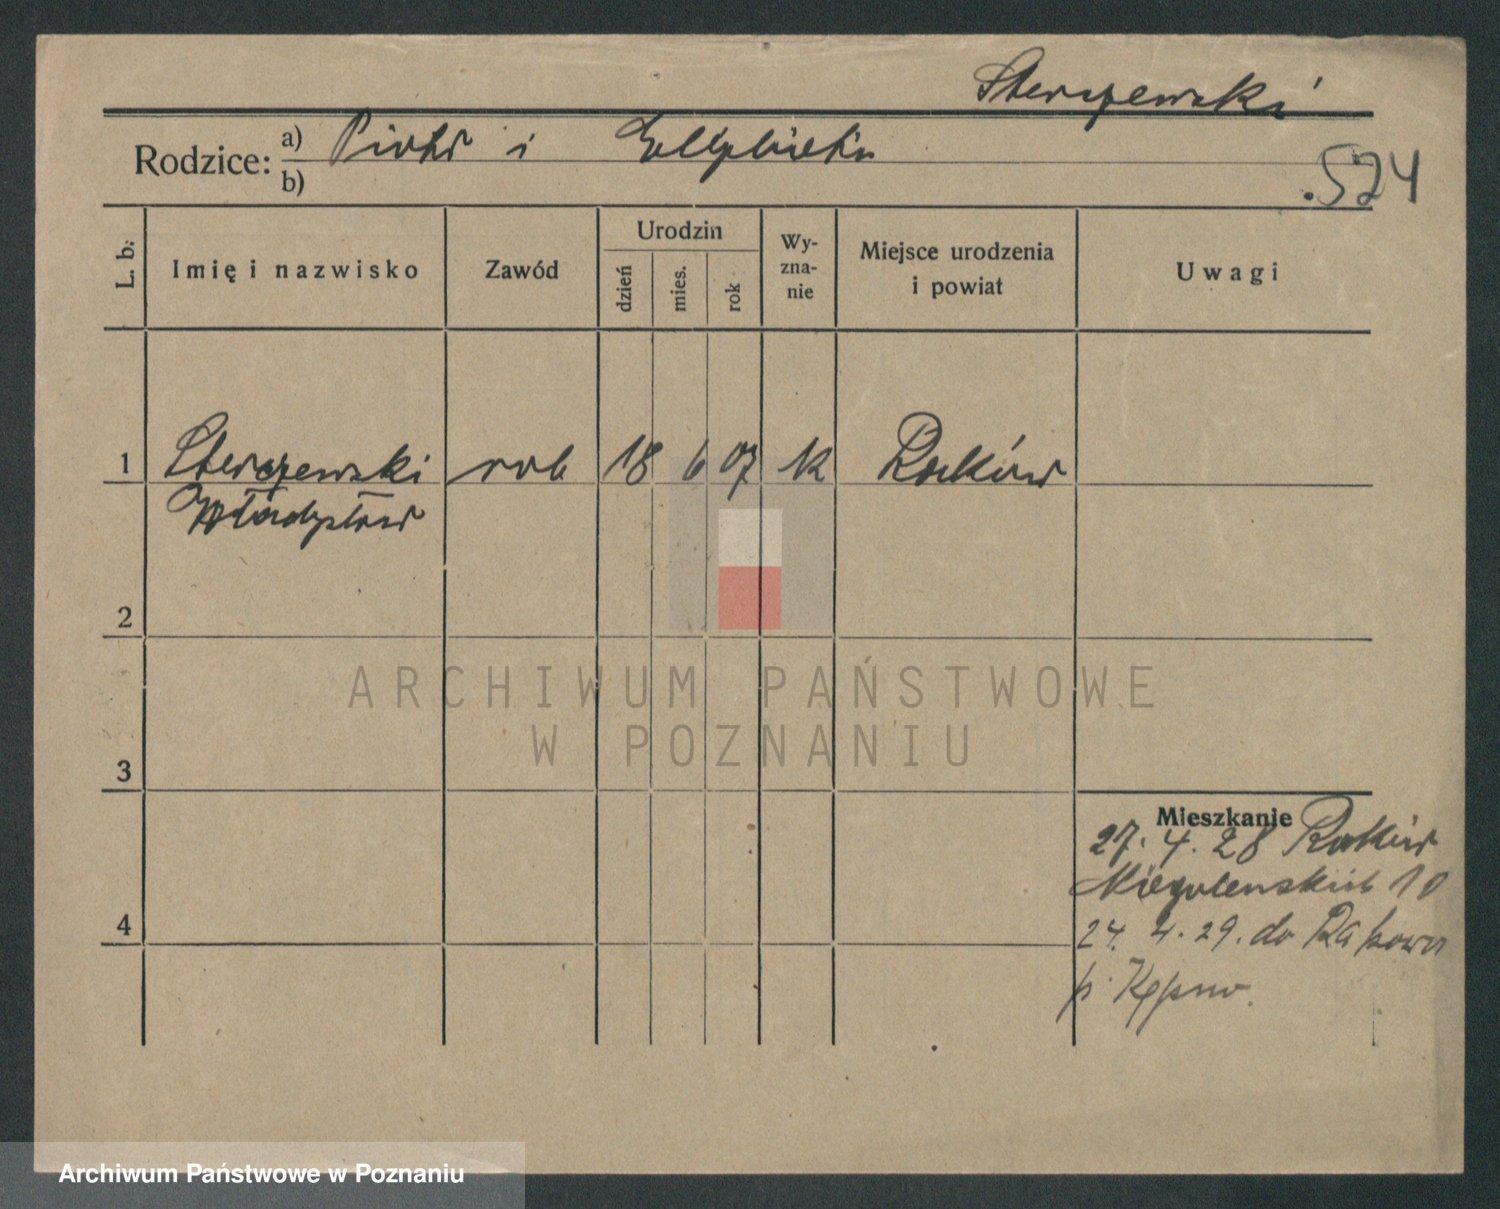 Sterczewski
Rodzice: a) Piotr i Elżbieta
b)
.524
L. b.
Imię i nazwisko
Zawód
Urodzin
dzień
mies.
rok
Wy-
zna-
nie
Miejsce urodzenia
i powiat
Uwagi
1 Sterczewski rob 18 6 07 k Raków
Władysław
2
ARCHIWUM PAŃSTWOWE
W POZNANIU
3
Mieszkanie
27. 4. 28 Raków
10
4
24. 4. 29. do Rakowa
p. Kępno.
Archiwum Państwowe w Poznaniu